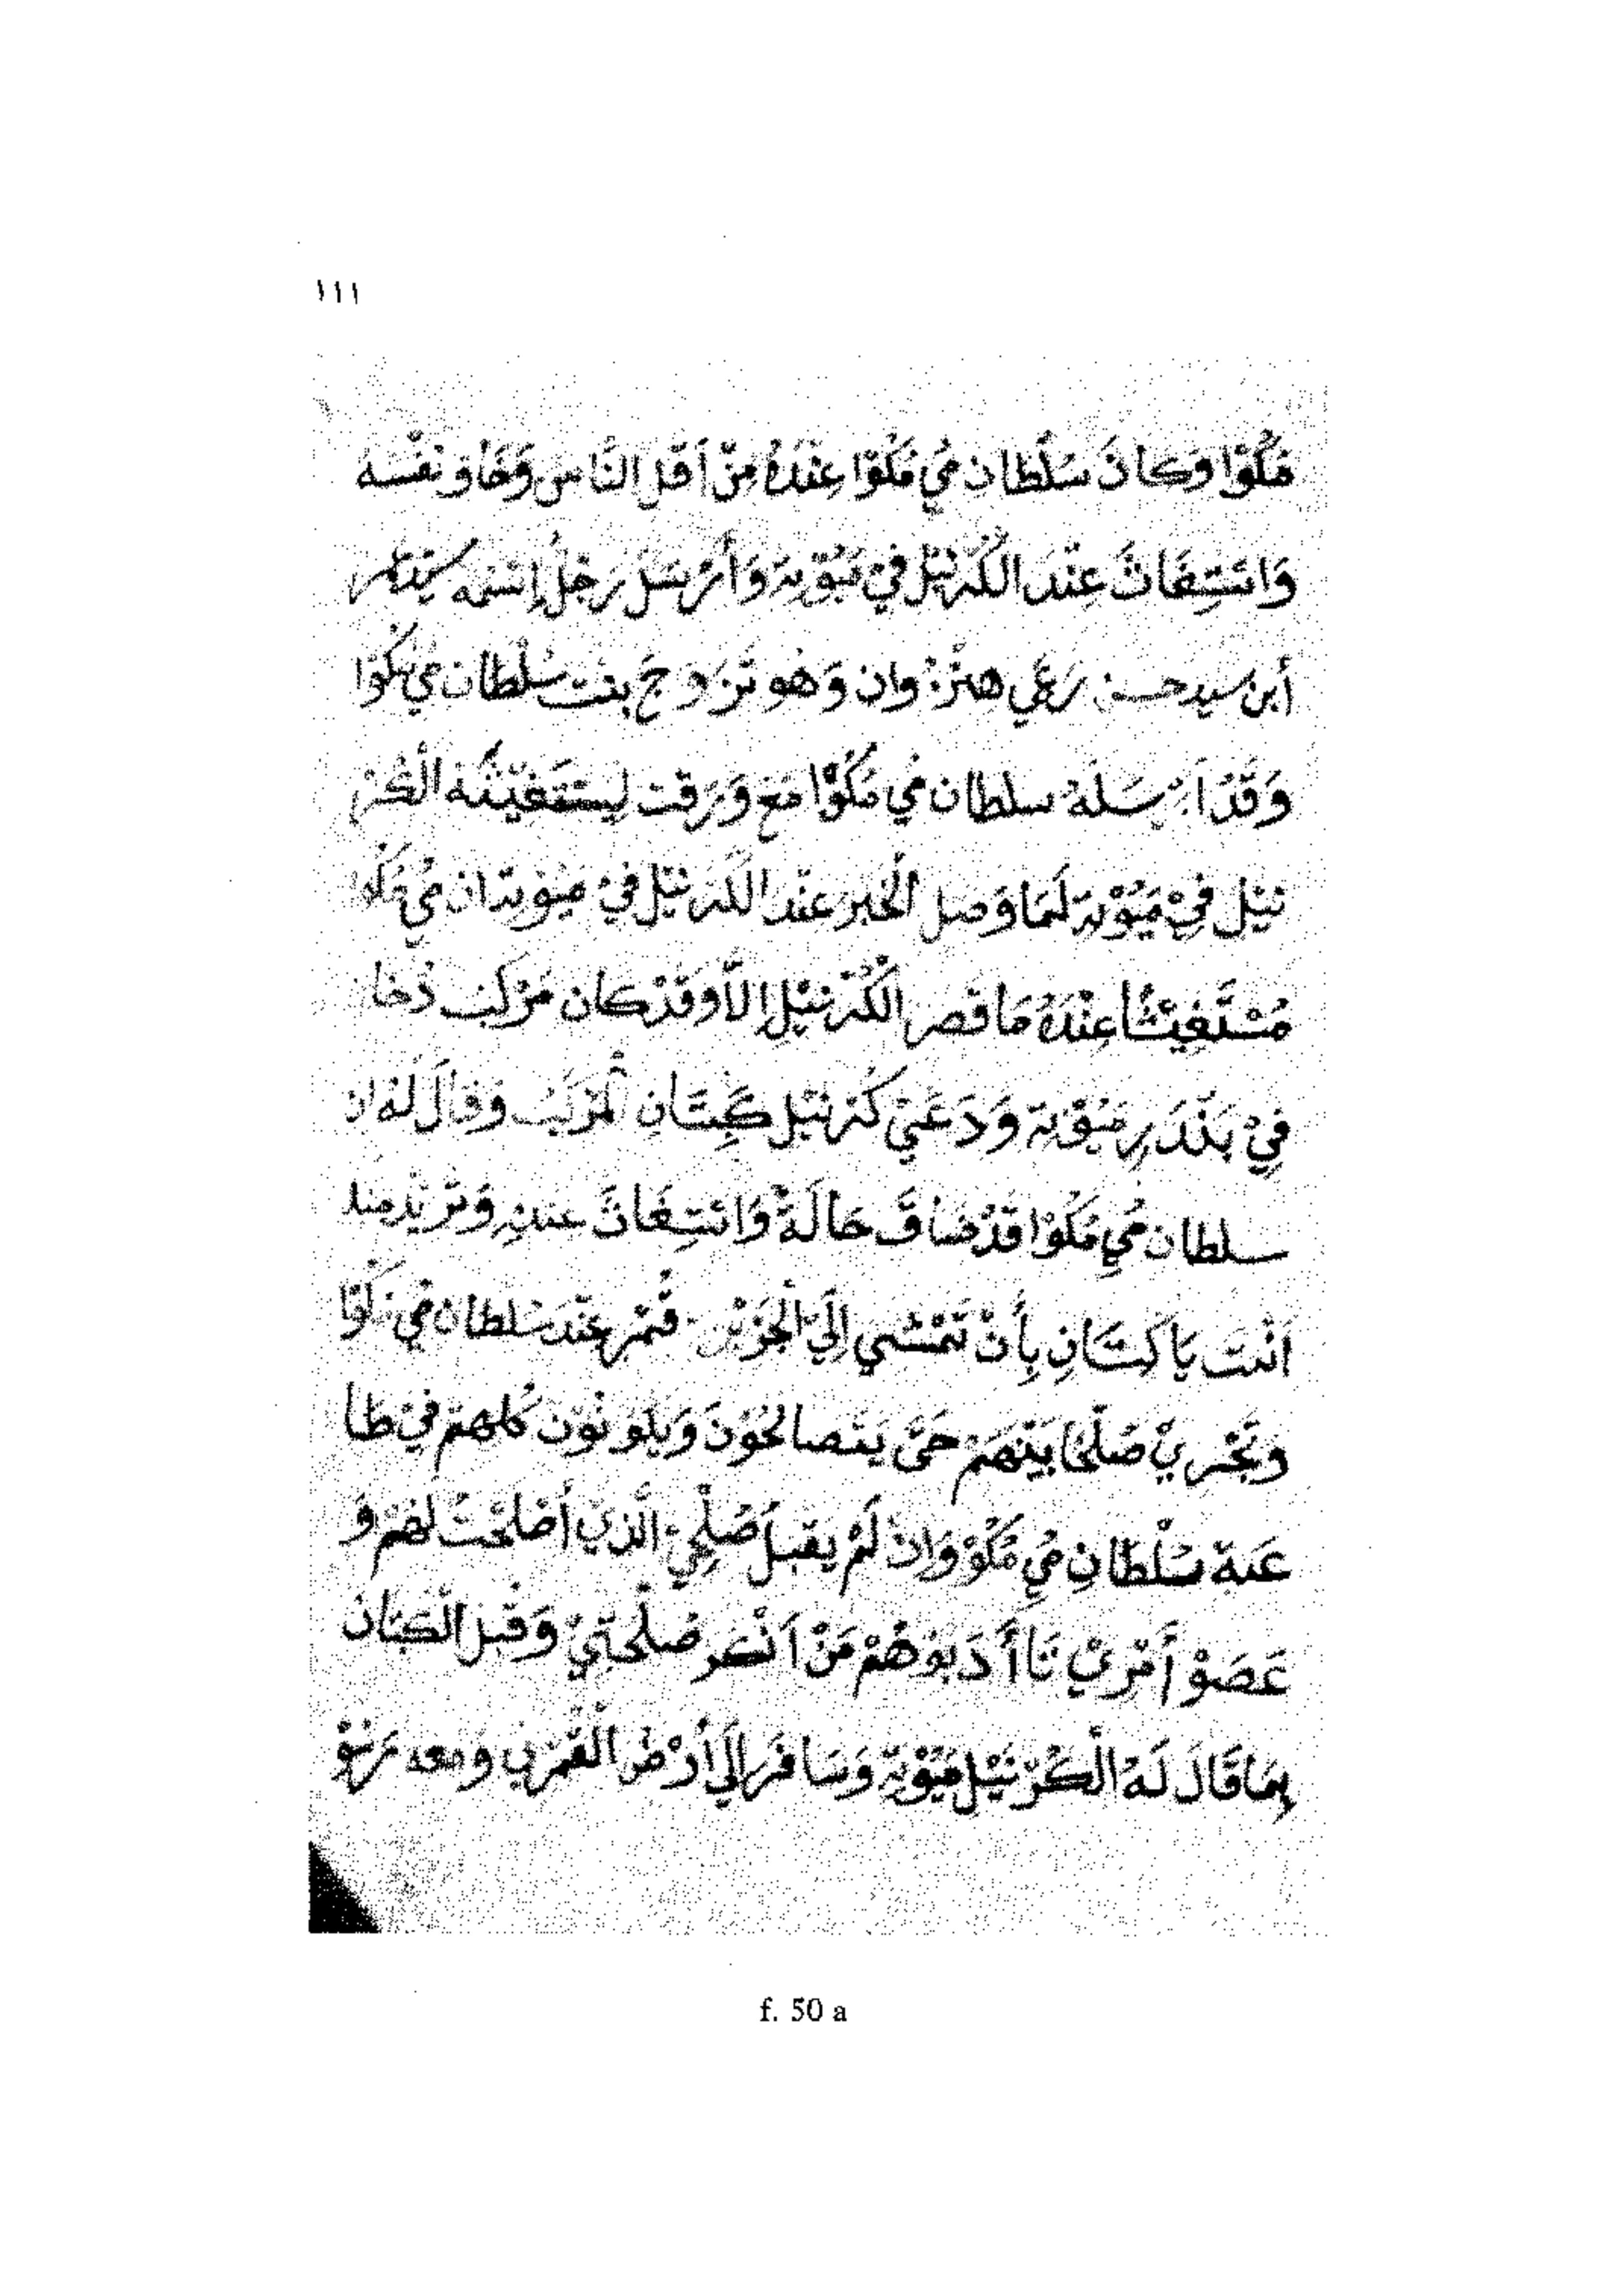 ١١١
مُكُوْا وَكَانَ سُلْطَان مُي مُكُوْا عِنْدَهُ مِنْ أَقَلِ النَّاسِ وَخَاو نَفْسَه
وَائْسَتِغَاثَ عِنْدَ الْكُرْنَيْل فِيْ مَيُوْتِة وَأَرْسَل رَجُلُ إِسْمَه سَيِّد
أبن سيد حسن هنزوان وَهُو تَزَوج بِنْت سُلْطَان مُي مُكُوا
وَقَدْ أَرْسَلَهُ سلطان مُي مُكُوْا مَع وَرَقت لِيَسْتَغِيْثَهُ الْكُرْ
نَيْل فِيْ مَيُوْتِة لَمَا وَصل الْخَبر عِنْد الْكُرنَيْل فِيْ مَيُوْتِة ان مُي مُكُو
مُسْتَغِيْثًا عِنْدَهُ مَا قَصر الْكُرْنَيْل إلاَّ وَقَدْ كان مَرْكَب دُخا
فِيْ بَنْدَرِ مَيُوْتِة وَدَعَيْ كُرْنَيْل كَبِتَانِ الْمَرْكَبُ وَقَالَ لَهُ ان
سلطان مُيِ مُكُوْا قَدْ ضَاقَ حَالَهُ وَائْسَتِغَاثَ عندنِ وَنُرِيْد منك
اَنْتَ يَا كَبِتَانِ بِأَنْ تَمْشي اِلَيْ الْجَزيْر فَتمْر عِنْدَ سُلطان مُي مُكُوْا
وَتَجْرِيْ صُلْحًا بَيْنَهَمْ حَتَّى يَتَصالحُوْنَ وَيَكُوْنُوْن كُلهمْ فِيْ طَا
عَة سُلْطَانِ مُيِ مُكُوْ وَاِنْ لَمْ يقبل صُلْحِي الَّذِيْ أَصْلَحْتُ لَهُمْ وَ
عَصَوْ أَمْرِيْ نَا أَدَبُوْهُمْ مَنْ اَنْكَر صُلْحَتِيْ وَقَبل الْكَبتَان
بِمَا قَالَ لَهُ الْكُرْنَيْل مَيُوْتِة وَسَافَر إِلَي أَرْض الْقُمْرِي وَمعه
f. 50 a